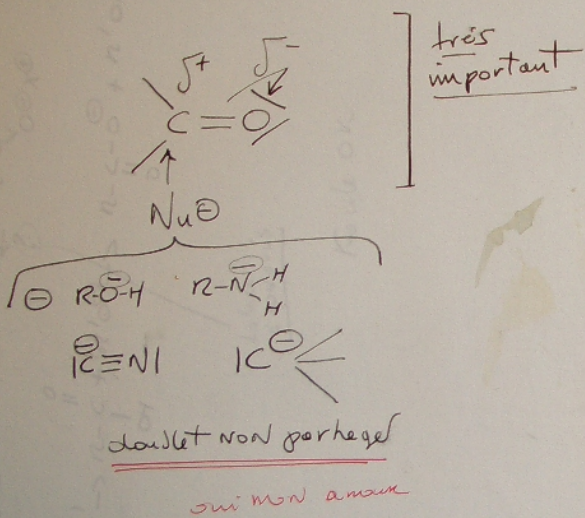 δ+ δ-
très
important
C=O
Nu⊖
⊖ R-O-H R-N-H
H
|C≡N| |C⊖
doublet NON partagé
oui mon amour